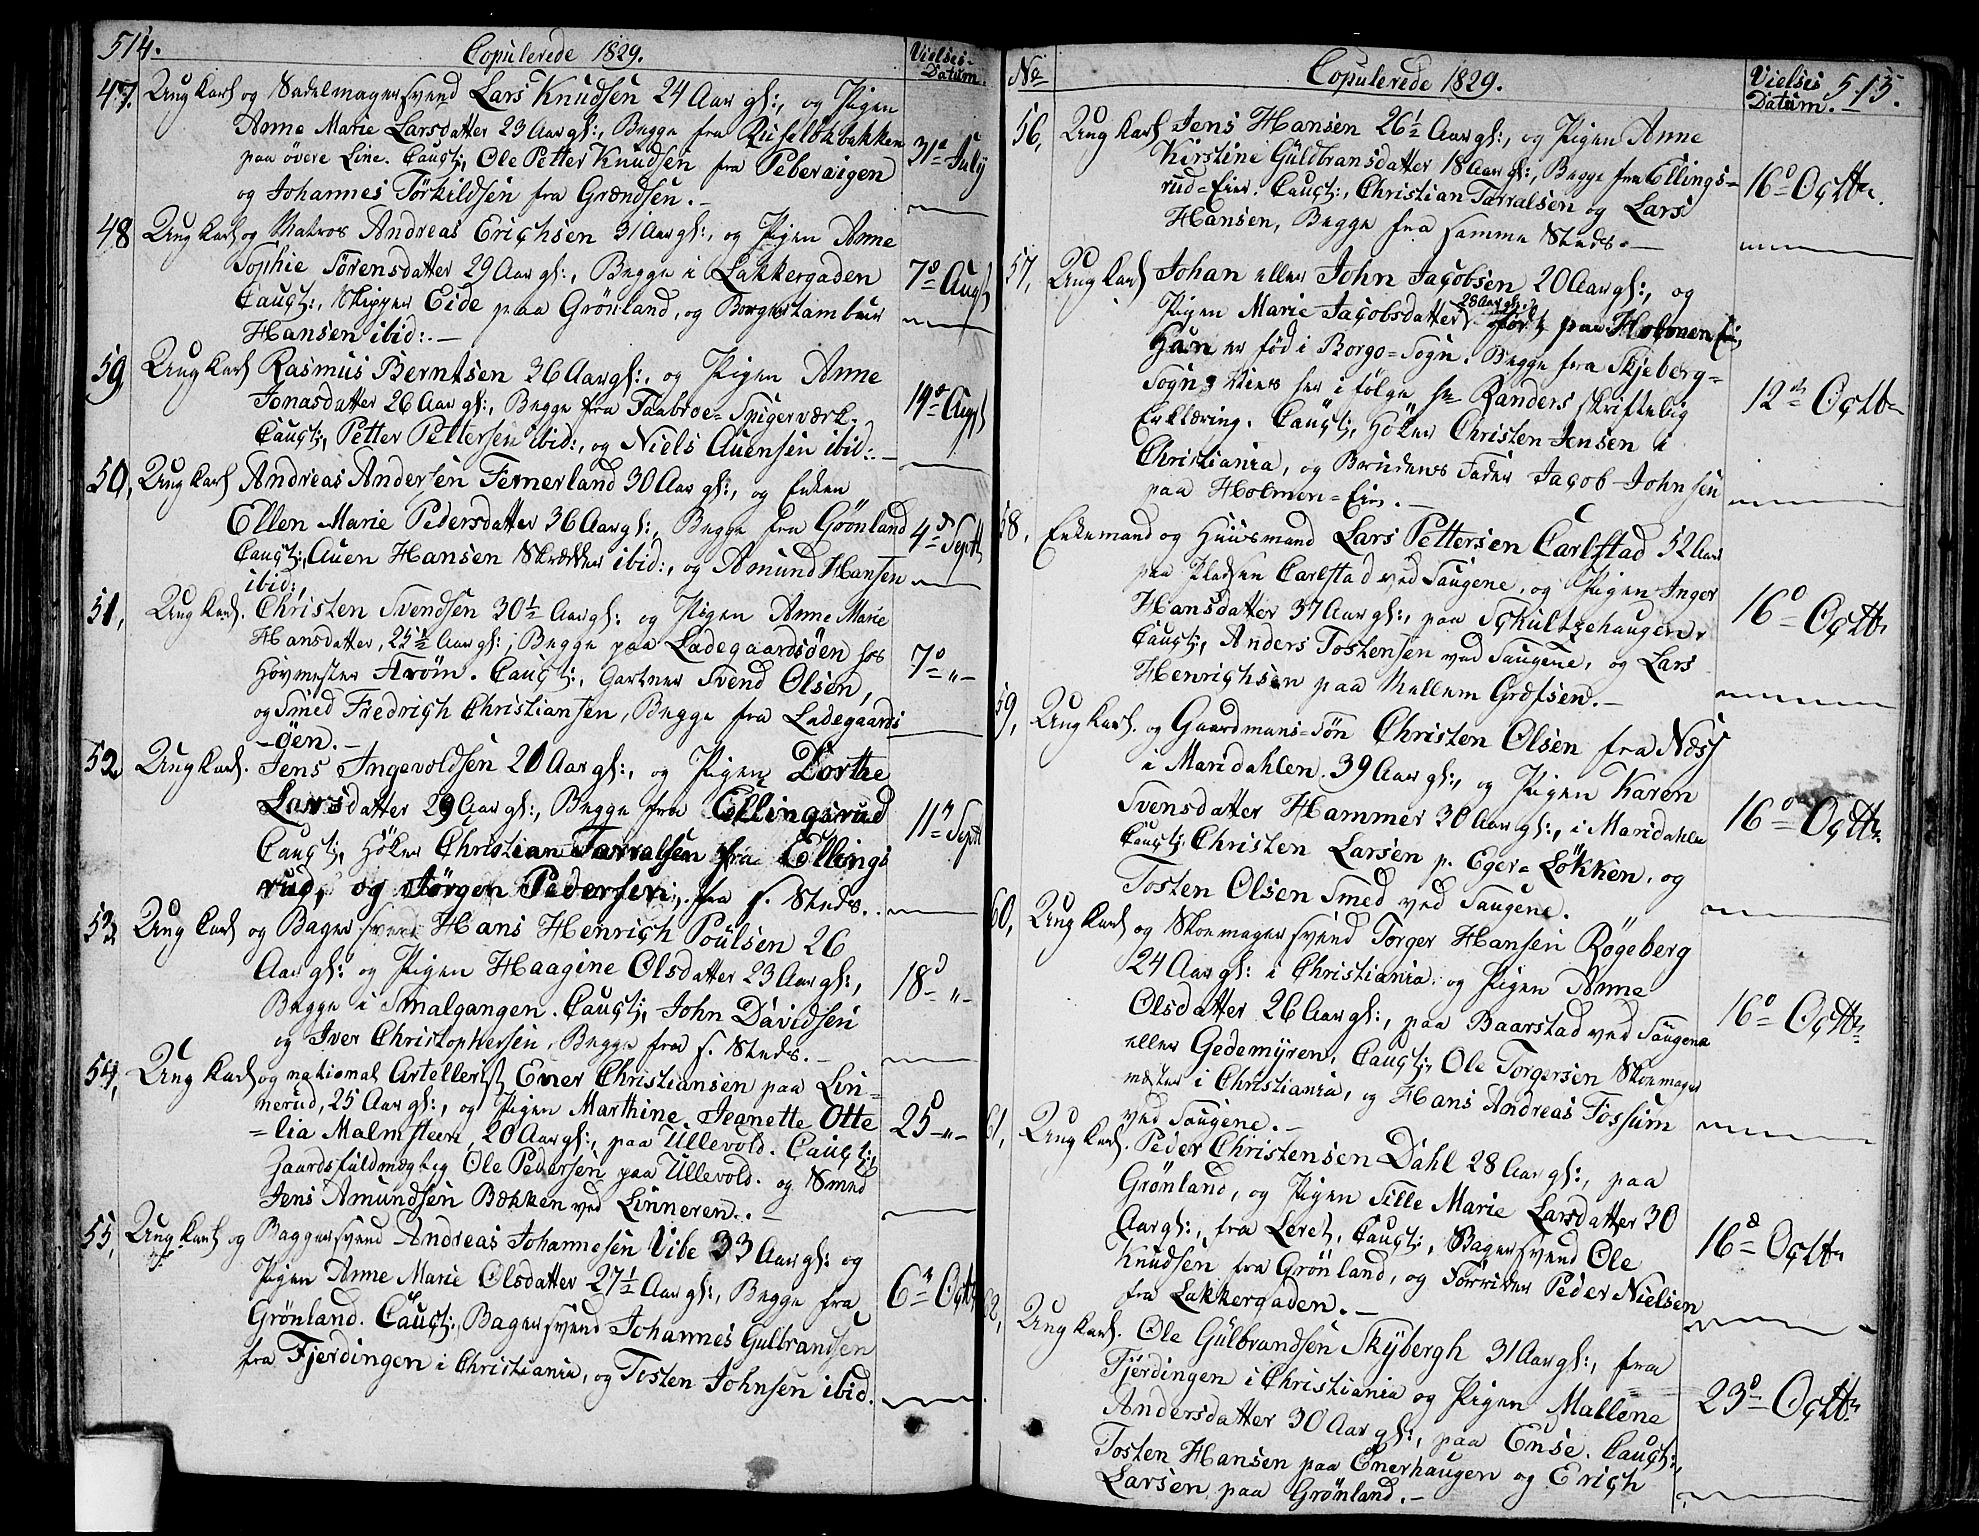 514.
Copulerede 1829.
Vielses-
Datum.
47. Ung Karl og Sadelmagersvend Lars Knudsen 24 Aar gl:, og Pigen
Anne Marie Larsdatter 23 Aar gl:, Begge fra Ruseløkbakken
paa övere Line. Cauct:, Ole Petter Knudsen fra Pebervigen
og Johannes Törkildsen fra Grændsen.-
31te July
48 Ung Karl og Matros Andreas Erichsen 31 Aar gl:, og Pigen Anne
Sophie Sörensdatter 29 Aar gl:, Begge i Lakkergaden
Cauct:, Skipper Eide paa Grönland, og Borger tambur
Hansen ibid:.-
7de Augt
59, Ung Karl Rasmus Berntsen 36 Aar gl:, og Pigen Anne
Jonasdatter 26 Aar gl:, Begge fra Taabroe-Spigerværk.
Cauct:, Petter Pettersen ibid:, og Niels Auensen ibid:.-
14de Augt
50, Ung Karl Andreas Andersen Femerland 30 Aar gl:, og Enken
Ellen Marie Pedersdatter 36 Aar gl:, Begge fra Grönland
Cauct:, Auen Hansen Skrædder ibid:, og Amund Hansen
ibid:,
4de Septt
51, Ung Karl. Christen Svendsen 30½ Aar gl: og Pigen Anne Marie
Hansdatter, 25½ Aar gl:, Begge paa Ladegaardsöen hos
Hovmester Ström. Cauct:, Gartner Svend Olsen,
og Smed Fredrich Christiansen, Begge fra Ladegaards
-öen.-
7de "-
52. Ung Karl. Jens Ingevoldsen 20 Aar gl:, og Pigen Dorthe
Larsdatter 29 Aar gl:, Begge fra Ellingsrud
Cauct:, Höker Christian Tarralsen fra Ellings
rud, og Jörgen Pedersen, fra s. Steds.
11te Septt
53 Ung Karl og Bagersvend Hans Henrich Poulsen 26
Aar gl: og Pigen Haagine Olsdatter 23 Aar gl:,
Begge i Smalgangen. Cauct:, John Davidsen
og Iver Christophersen, Begge fra s. Steds.-
18de "-
54, Ung Karl og national Artellerist Ener Christiansen paa Lin-
nerud, 25 Aar gl:, og Pigen Marthine Jeanette Otte
=lia Malmsteen, 20 Aar gl:, paa Ullevold. Cauct:,
Gaardsfuldmægtig Ole Pedersen paa Ullevold. og Smed
Jens Amundsen Bækken ved Linneren..-
25de -"-
55, Ung Karl og Baggersvend Andreas Johannesen Vibe 33 Aar gl: og
Pigen Anne Marie Olsdatter 27½ Aar gl:, Begge fra
Grönland. Cauct:, Bagersvend Johannes Gulbrandsen
fra Fjerdingen i Christiania, og Tosten Johnsen ibid.
6te Octt
No
Copulerede 1829.
Vielses
Datum.
515.
56, Ung Karl Jens Hansen 26½ Aar gl:, og Pigen Anne
Kirstine Güldbransdatter 18 Aar gl:, Begge fra Ellings-
rud=Eier. Cauct:, Christian Tarralsen og Lars
Hansen, Begge fra samme Steds.-
16de Octbr.
57, Ung Karl Johan eller John Jacobsen 20 Aar gl:, og
Pigen Marie Jacobsdatter 28 Aar gl:, föd paa Holmen Eie,
Han er föd i Borge=Sogn. Begge fra Skjeberg=
Sogn, Vies her i fölge Hr Randers skriftelig
Erklæring. Cauct:, Höker Christen Jensen i
Christiania, og Brudens Fader Jacob Johnsen
paa Holmen=Eie.-
12te Octbr
58, Enkemand og Huusmand Lars Pettersen Carlstad 52 Aar
paa Pladsen Carlstad ved Saugene, og Pigen Inger
Hansdatter 37 Aar gl:, paa Schultzehaugen.
Cauct:, Anders Tostensen ved Saugene, og Lars
Henrichsen paa Mellem Grefsen.-
16de Octbr
59, Ung Karl. og Gaardmans=Sön Christen Olsen fra Næss
i Maridahlen. 39 Aar gl:, og Pigen Karen
Svensdatter Hammer 30 Aar gl:, i Maridahlen
Cauct: Christen Larsen p. Eger=Lökken, og
Tosten Olsen Smed ved Saugene.
16de Octtr
60, Ung Karl og Skomagersvend Torger Hansen Rögeberg
24 Aar gl: i Christiania. og Pigen Anne
Olsdatter 26 Aar gl:, paa Baarstad ved Saugene
eller Gedemyren, Cauct:, Ole Torgersen Skomager
mester i Christiania, og Hans Andreas Fossum
ved Saugene.-
16de Octtr
61, Ung Karl. Peder Christensen Dahl 28 Aar gl:, paa
Grönland, og Pigen Sille Marie Larsdatter 30
Aar gl:, fra Leret, Cauct:, Bagersvend Ole
Knudsen fra Grönland, og Forrider Peder Nielsen
fra Lakkergaden.-
16de Octtr
62, Ung Karl. Ole Gülbrandsen Skybergh 31 Aar gl:, fra
Fjerdingen i Christiania og Pigen Mallene
Andersdatter 30 Aar gl:, paa Ense. Cauct:,
Tosten Hansen paa Enerhaugen og Erich
Larsen paa Grönland.-
23de Octtr